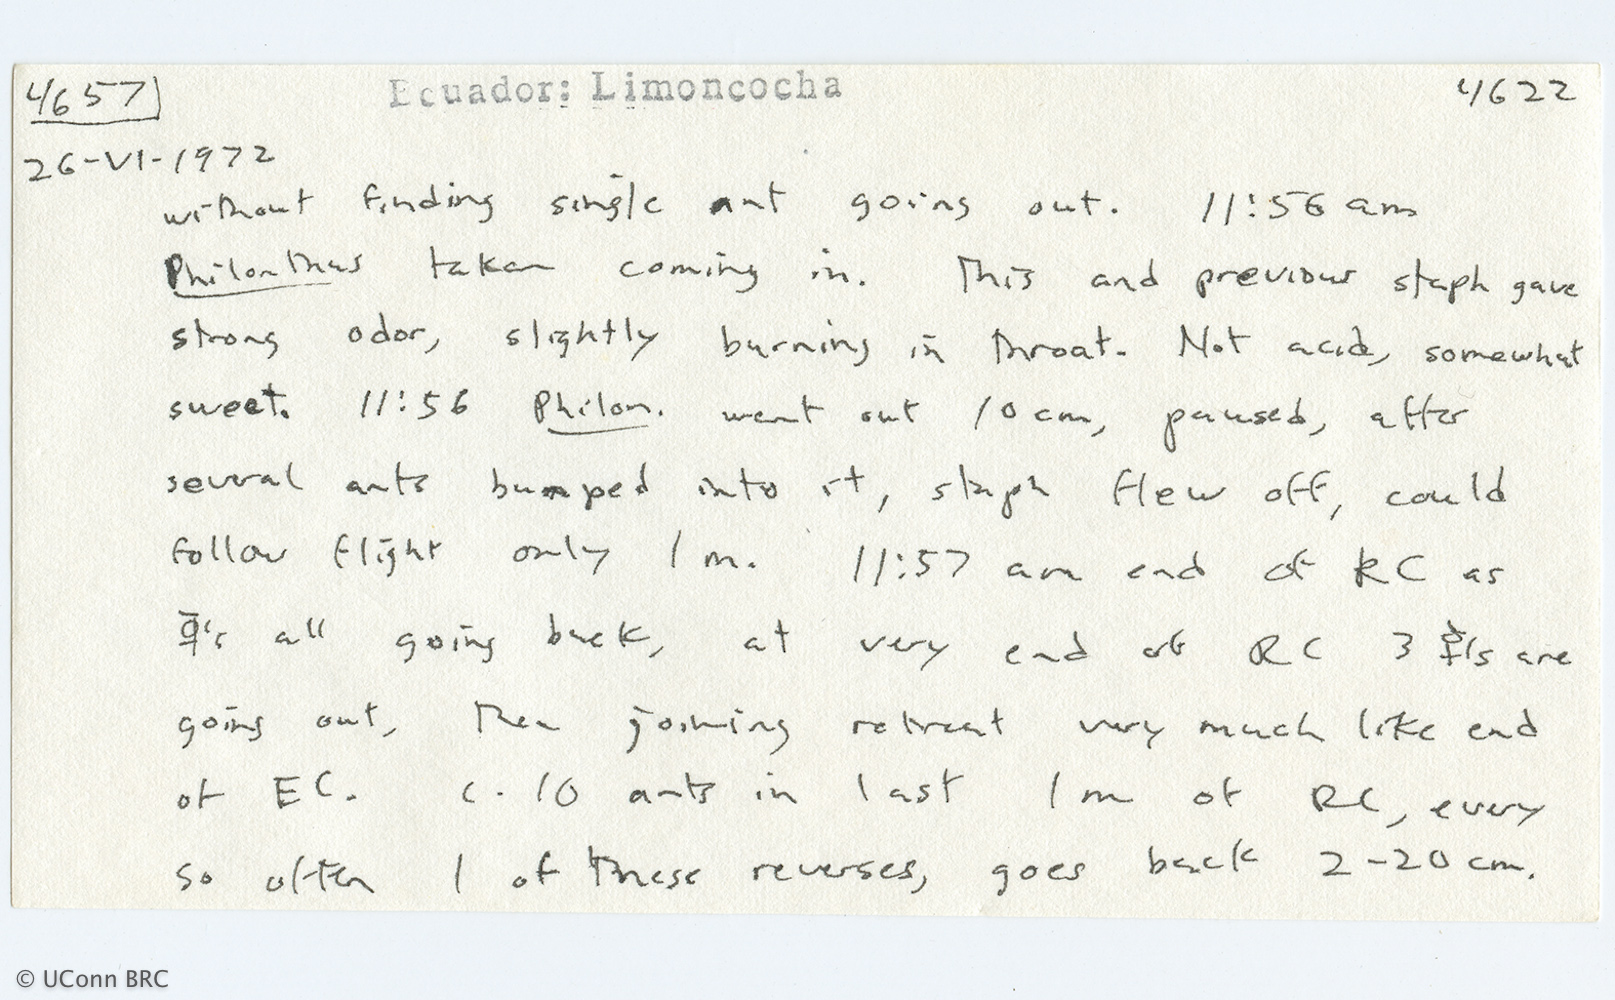 4657 Ecuador: Limoncocha 4622
26-VI-1972
without finding single ant going out. 11:56 am
Philonthus taken coming in. This and previous staph gave
strong odor, slightly burning in throat. Not acid, somewhat
sweet. 11:56 Philon. went out 10 cm, paused, after
several ants bumped into it, staph flew off, could
follow flight only 1 m. 11:57 am end of RC as
☿'s all going back, at very end of RC 3 ☿'s are
going out, then joining retreat very much like end
of EC. c. 10 ants in last 1 m of RC, every
so often 1 of these reverses, goes back 2-20 cm.
© UConn BRC